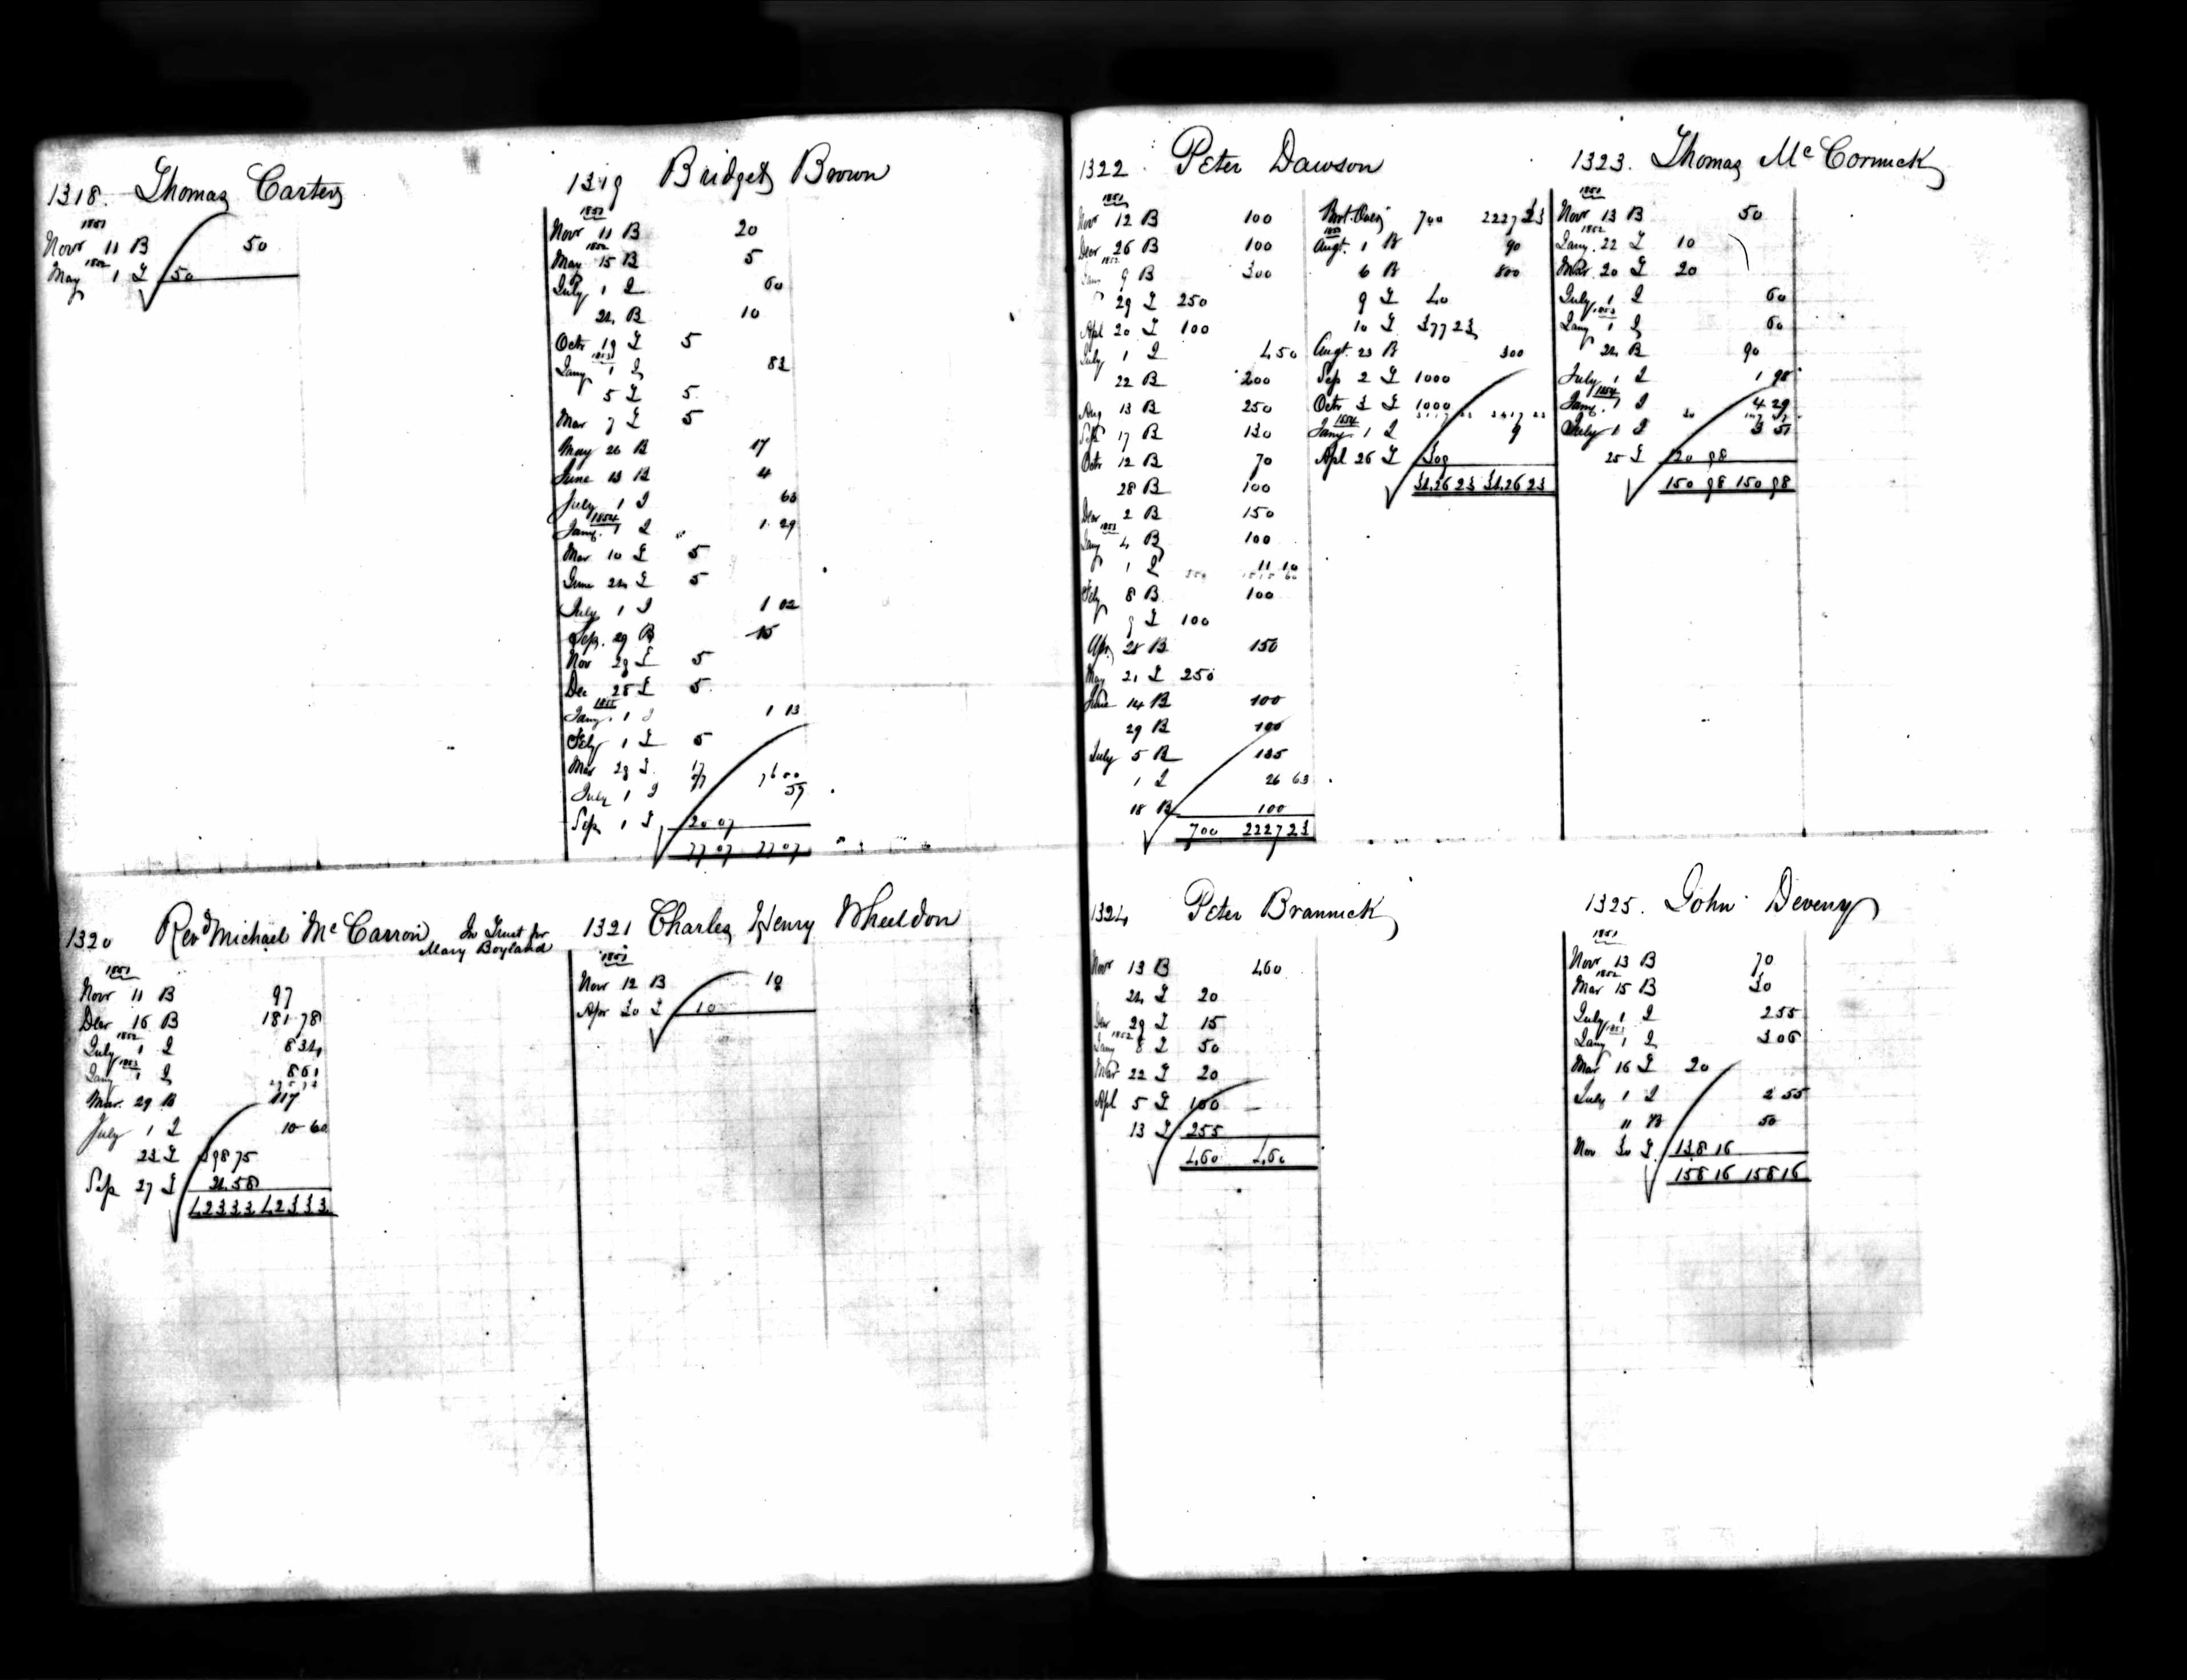 1318. Thomas Carter
1851
Novr 11 B 50
1852
May 1 L 50
1319 Bridget Brown
1851
Novr 11 B 20
1852
May 15 B 5
July 1 I 60
24 B 10
Octr 19 L 5
1853
Jany 1 I 83
5 L 5
Mar 7 L 5
May 26 B 17
June 13 B 4
July 1 I 63
1854
Jany. 1 I 1 29
Mar 10 L 5
June 24 L 5
July 1 I 1 02
Sep. 29 B 15
Nov 29 L 5
Dec 28 L 5
1855
Jany. 1 I 1 13
Feby 1 L 5
Mar 29 L 17
July 1 I 59
Sep 1 L 20 07
77 07 77 07
1320 Revd Michael Mc Carron In Trust for
Mary Boyland
1851
Novr 11 B 97
Decr 16 B 181 78
1852
July 1 I 8 34
1853
Jany 1 I 8 61
Mar. 29 B 117
July 1 I 10 60
23 L 398 75
Sep 27 L 24 58
423 33 423 33
1321 Charles Henry Wheeldon
1851
Novr 12 B 10
Apr 30 L 10
1322 Peter Dawson
1851
Novr 12 B 100
Decr 26 B 100
1852
Jany 9 B 300
29 L 250
Apl 20 L 100
July 1 I 4 50
22 B 200
Aug 13 B 250
Sep 17 B 130
Octr 12 B 70
28 B 100
Decr 2 B 150
1853
Jany 4 B 100
1 I 11 10
Feby 8 B 100
9 L 100
Apr 28 B 150
May 21 L 250
June 14 B 100
29 B 100
July 5 B 135
1 I 26 63
18 B 100
700 2227 23
Brot. Over 700 2227 23
1853
Augt. 1 B 90
6 B 800
9 L 40
10 L 377 23
Augt. 23 B 300
Sep 2 L 1000
Octr 3 L 1000
1854
Jany. 1 I 9
Apl 26 L 309
3426 23 3426 23
1323. Thomas Mc Cormick
1851
Novr 13 B 50
1852
Jany. 22 L 10
Mar. 20 L 20
July 1 I 60
1853
Jany 1 I 60
24 B 90
July 1 I 1 98
1854
Jany. 1 I 4 29
July 1 I 3 51
25 L 120 98
150 98 150 98
1324 Peter Brannick
Novr 13 B 460
24 L 20
Decr 29 L 15
1852
Jany 8 L 50
Mar 22 L 20
Apl 5 L 100
13 L 255
460 460
1325. John Deveny
1851
Novr 13 B 70
1852
Mar 15 B 30
July 1 I 2 55
1853
Jany 1 I 3 06
Mar 16 L 20
July 1 I 2 55
11 B 50
Nov 30 L 138 16
158 16 158 16